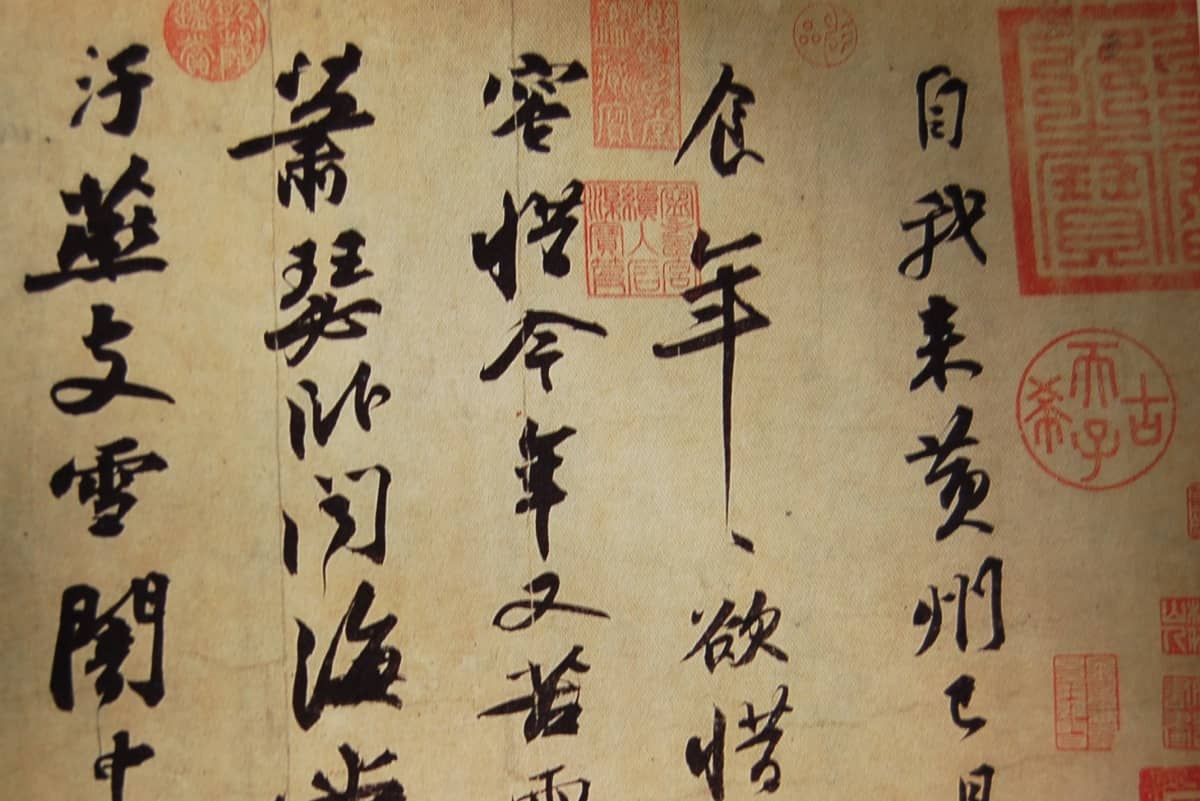 古希天子
自我来黄州已
食年、欲惜
容惜今年又苦雨
蕭瑟卧聞海
汙燕支雪闇中